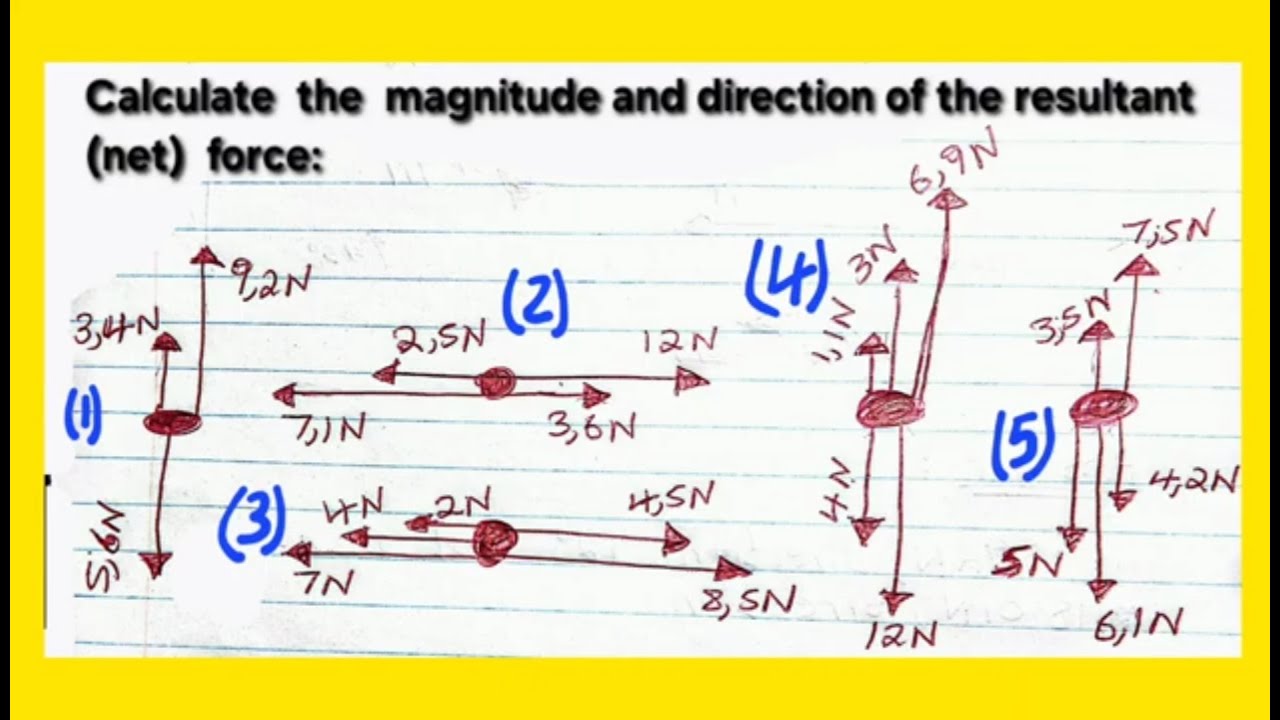 Calculate the magnitude and direction of the resultant
(net) force:
(1)
3,4N
9,2N
5,6N
(2)
2,5N
12N
7,1N
3,6N
(3)
4N
2N
4,5N
7N
8,5N
(4)
1,1N
3N
6,9N
4N
12N
(5)
3,5N
7,5N
5N
4,2N
6,1N